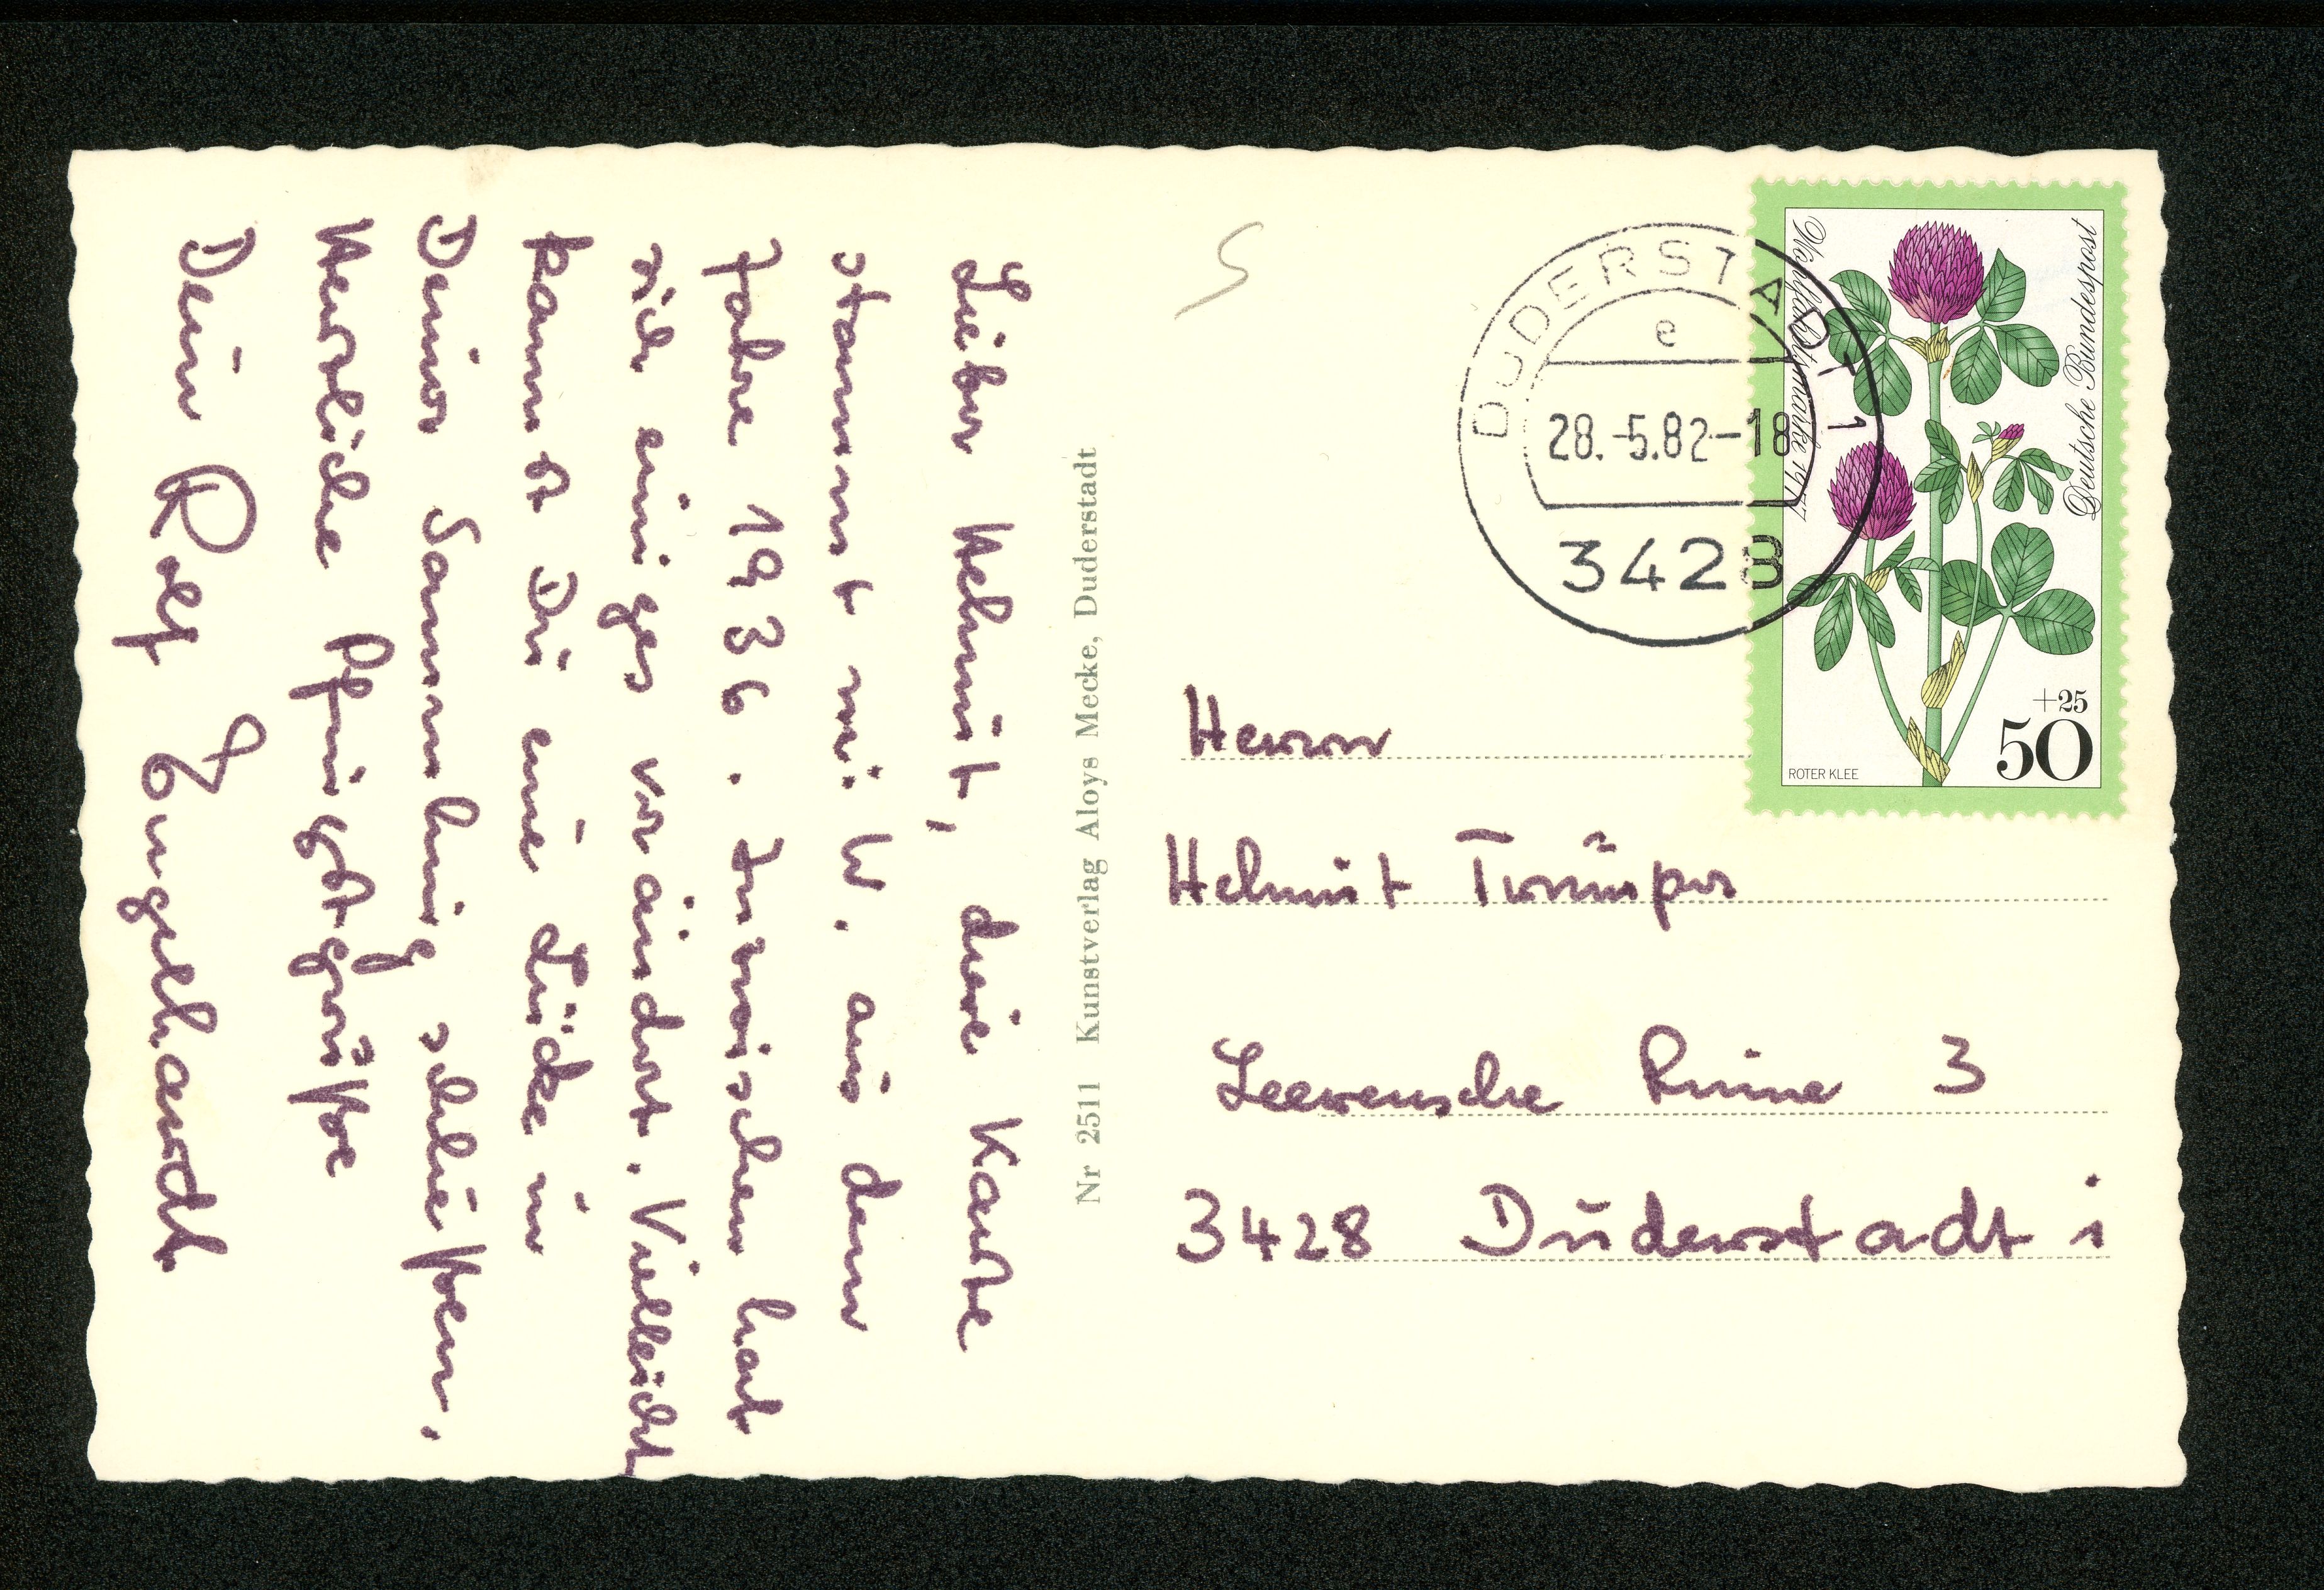 Lieber Helmut, diese Karte
stammt m. W. aus dem
Jahre 1936. Inzwischen hat
sich einiges verändert. Vielleicht
kannst Du eine Lücke in
Deiner Sammlung schließen.
Herzliche Pfingstgrüße
Dein Rolf Engelhardt
Nr 2511 Kunstverlag Aloys Mecke, Duderstadt
S
DUDERSTADT 1
e
28.-5.82-18
3428
Deutsche Bundespost
Wohlfahrtsmarke 1977
+25
50
ROTER KLEE
Herrn
Helmut
3
3428 Duderstadt 1